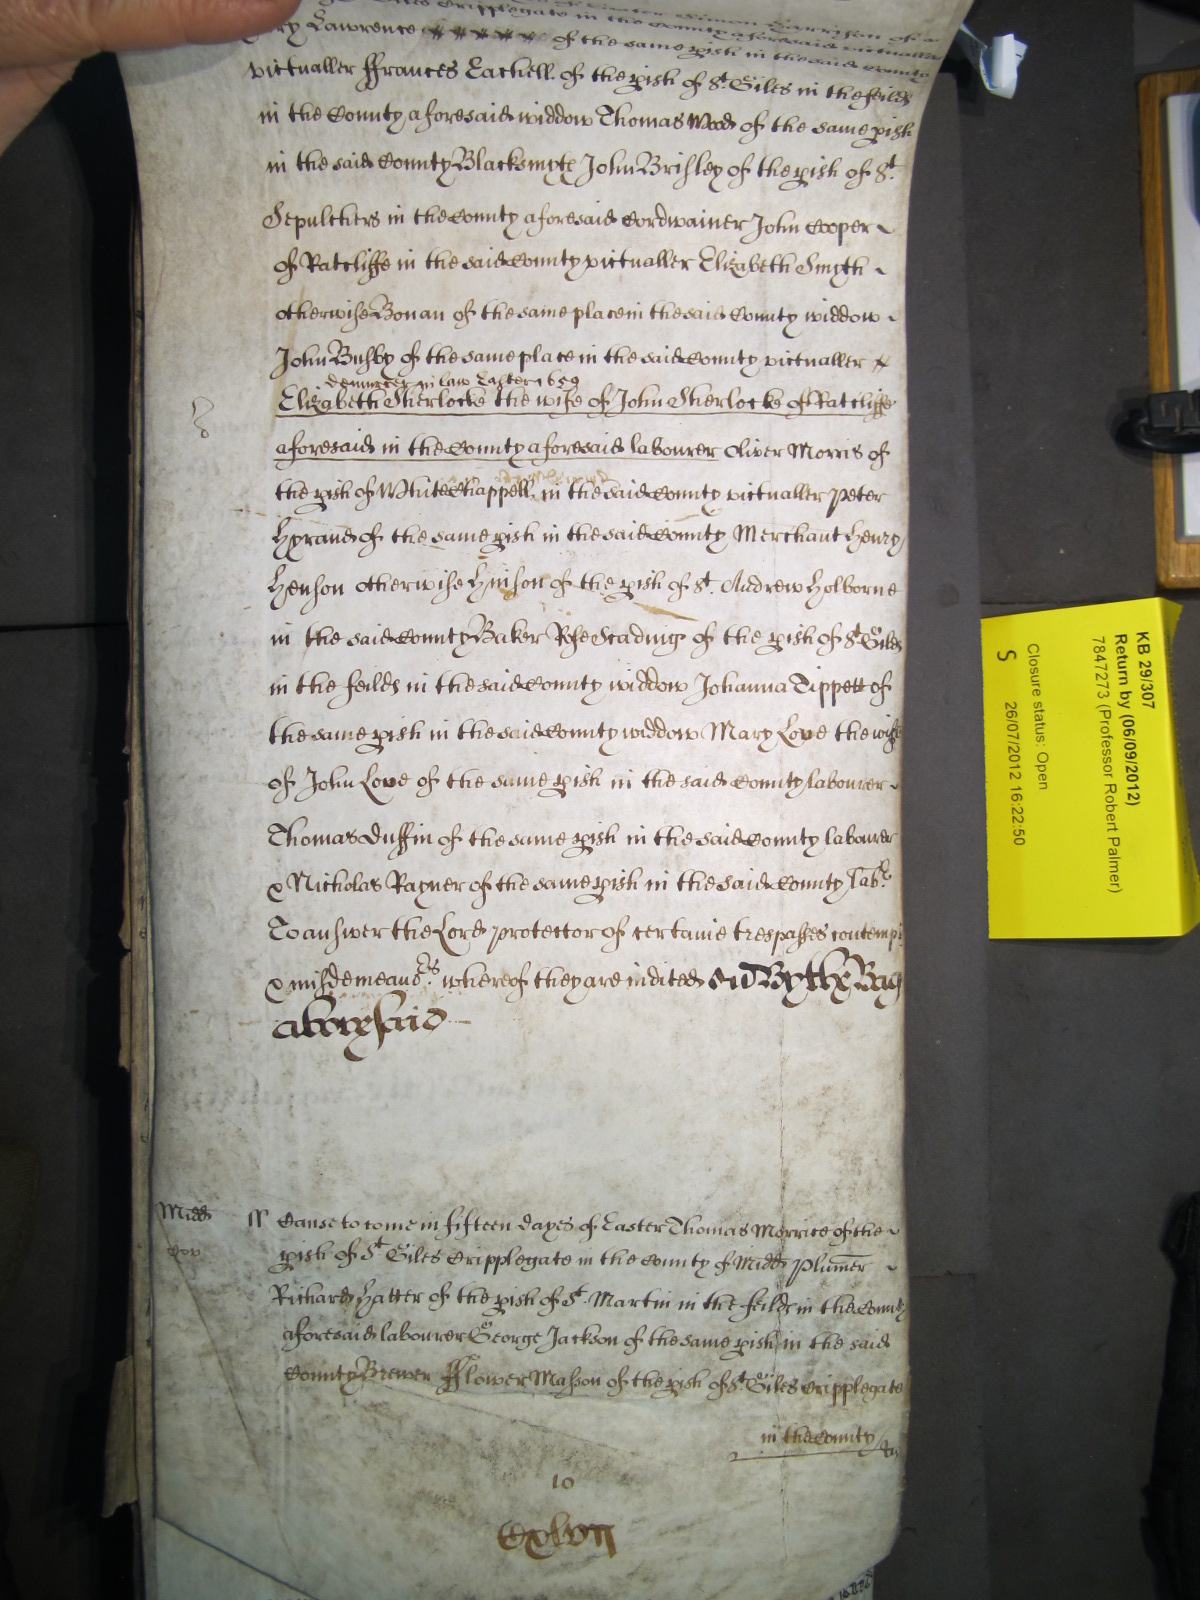 Giles Cripplegate in the County aforesaid victualler
Lawrence of the same pish in the said County
victualler ffrances Cackell of the pish of St. Giles in the feilds
in the County aforesaid widdow Thomas Wood of the same pish
in the said County Blacksmyth John Brisley of the pish of St.
Sepulchers in the County aforesaid Cordwainer John Cooper
of Ratcliffe in the said County victualler Elizabeth Smyth
otherwise Bonan of the same place in the said County widdow
John Busby of the same place in the said County victualler
demurrer in law Easter 1659
Elizabeth Sherlocke the wife of John Sherlocke of Ratcliffe
aforesaid in the County aforesaid labourer Oliver Morris of
the pish of White Chappell in the said County victualler Peter
Hyrand of the same pish in the said County Merchant Henry
Henson otherwise Hinson of the pish of St. Andrew Holborne
in the said County Baker Rose Scading of the pish of St. Giles
in the feilds in the said County widdow Johanna Tippett of
the same pish in the said County widdow Mary Love the wife
of John Love of the same pish in the said County labourer
Thomas Duffin of the same pish in the said County labourer
& Nicholas Rayner of the same pish in the said County labr.
To answer the Lord protector of certaine trespasses contempts
& misdemeanors. whereof they are indited By the Bag
aforesaid
Midd ss Cause to come in fifteen dayes of Easter Thomas Morrice of the
pish of St Giles Cripplegate in the County of Midd Plumer
Richard Hatter of the pish of St. Martin in the feilds in the County
aforesaid labourer George Jackson of the same pish in the said
County Brewer fflower Masson of the pish of St Giles Cripplegate
in the County
10
KB 29/307
Return by (06/09/2012)
7847273 (Professor Robert Palmer)
Closure status: Open
26/07/2012 16:22:50
S